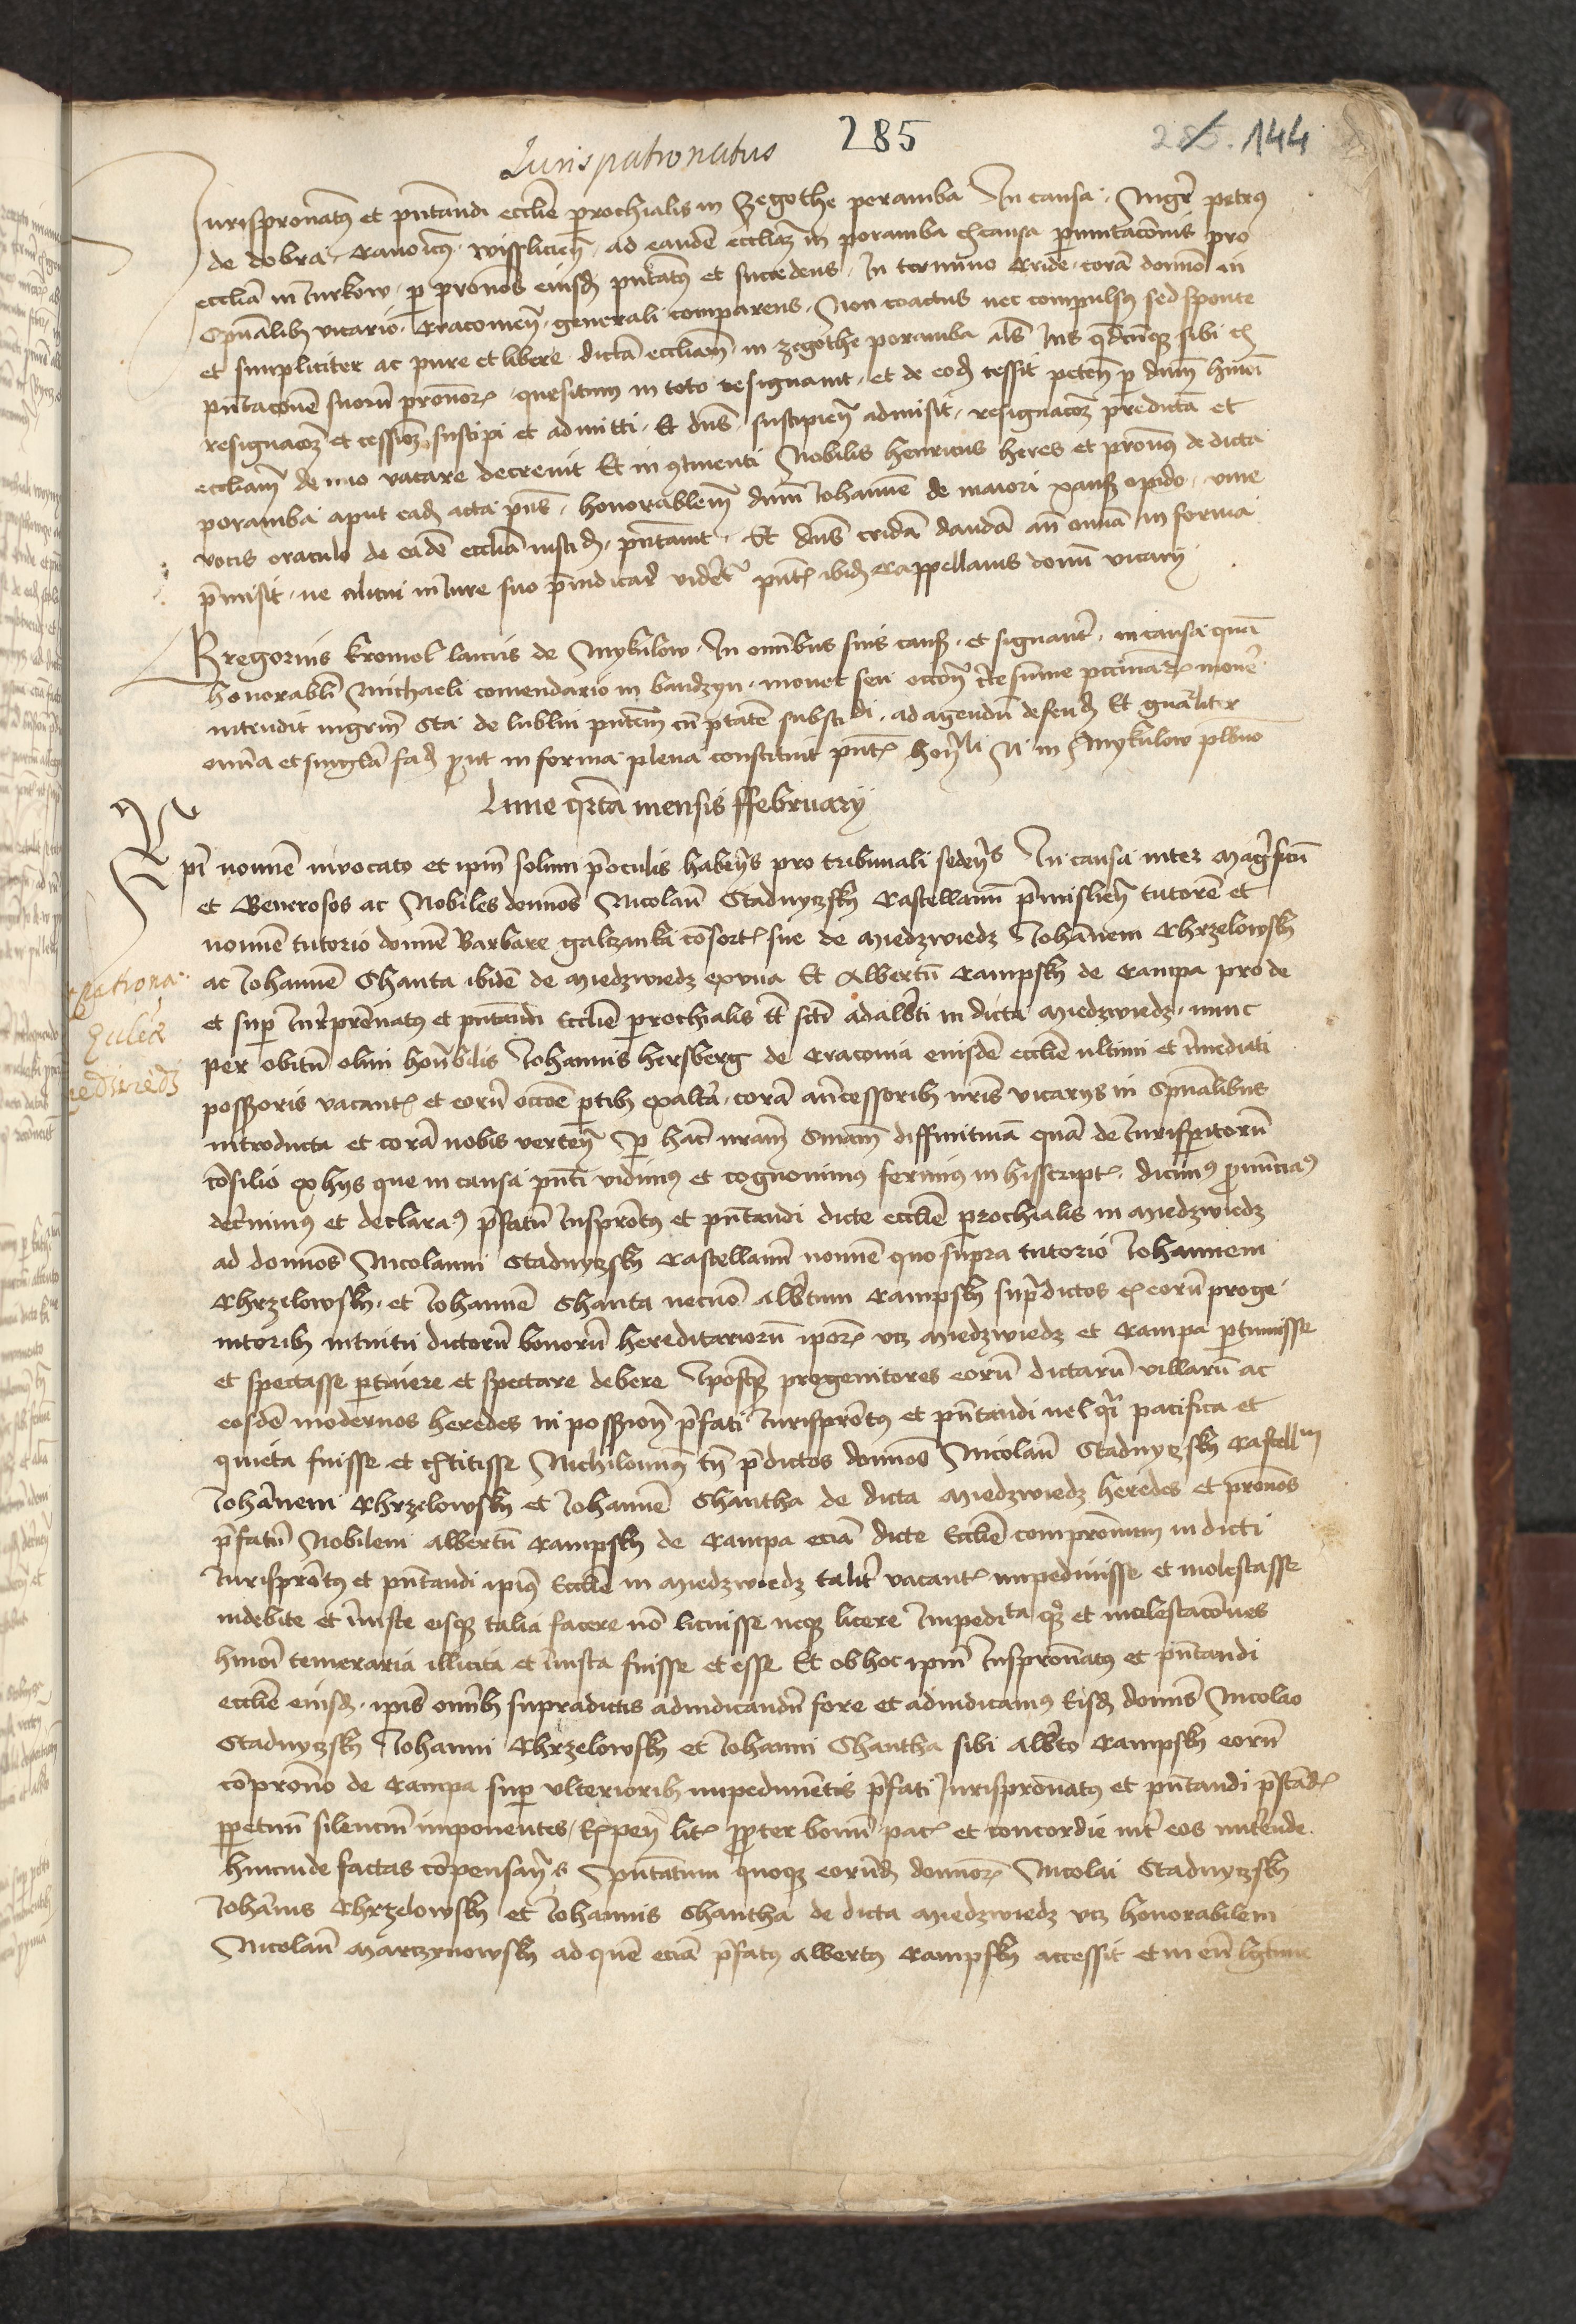 285
285. 144
Jurispatronatus
Jurispronatus et pntandi ecclie prochialis in Zegothe poramba In causa Mgr petrus
de dobra Canoicus wisslicien ad eande eccliaz in poramba ex causa pmutacōnis pro
ecclia in Turkow p pronos eiusd pntatus et succedens In termino cride corā domno in
Spūalibus vicario Cracouien generali comparens Non coactus nec compulsus sed sponte
et simpliciter ac pure et libere dictā eccliam in zegothe poramba als Jus qdcunqz sibi ex
pntacone suorū pronor quesitum in toto resignauit et de eod cessit peten p dnm hmoi
resignacoz et cessioz suscipi et admitti Et dns suscipien admisit resignacoz predictā et
eccliam de nouo vacare decreuit Et in continenti Nobilis henricus heres et pronus de dicta
poramba aput ead acta pns honorablem dnm Johanne de maiori opido viue
vocis oraculo de eadē ecclia pntauit Et dns cridā dandā in forma
pmisit ne alicui in Jure suo preiudicare videretur pnt ibid Cappellanis domni vicarij
Gregorius kromol laicus de Mykulow In omnibus suis causis et signanter in causa quā
honorabli Michaeli comendario in bandzyn mouet seu occoē certe sūme pecuniar mouere
intendit mgrm Sta de lublin pntem cū ptate substdi ad agendū defend Et gnāliter
omnia et singula fad put in forma plena constituit pnt hon li Ni in Mykulow plbno
Lune quarta mensis ffebruarij
Xpi nomine inuocato et ipm solum p oculis habens pro tribunali sedens In causa inter Magficū
et Generosos ac Nobiles domnos Nicolaū Stadnyczsky Castellanū premislien tutorē et
nomine tutorio domne Barbare galczanka cōsort sue de Miedzwiedz Johānem Chrzelowsky
ac Johanne Chanta ibidē de Miedzwiedz ex vna Et Albertū Rampsky de Rampa pro de
et sup Jurprenatus et pntandi Ecclie prochialis tt scti adalbti in dicta Miedzwiedz nunc
per obitū olim honrbilis Johannis hersberg de Cracouia eiusdē ecclie ultimi et īmediati
possoris vacant et eorū occoē ptib ex altera corā ancessorib nris vicarijs in Spūalibus
introducta et corā nobis verten P hāc nram Smam diffinitiuā quā de Jurispitorū
cōsilio ex hijs que in causa pnti vidimus et cognouimus ferimus in hiis script dicimus pnūciamus
decernimus et declaramus pfatū Juspronatus et pntandi dicte ecclie prochialis in Miedzwiedz
ad domnos Nicolaum Stadnyczsky Castellanū nomine quo supra tutorio Johannem
Chrzelowsky et Johannē Chanta necnō Albtum Rampsky supradictos et eorū proge
nitorib intuitu dictorū bonorū hereditariorū ipor vcz Miedzwiedz et Rampa ptinuisse
et spectasse ptinere et spectare debere Ipsosqz progenitores eorū dictarū villarū ac
eosdē modernos heredes in possione pfati Jurisprontus et pntandi vel qsi pacifica et
quieta fuisse et extitisse Nichilominus tn pdictos domnos Nicolaū Stadnyczsky Castellm
Johānem Chrzelowsky et Johannē Chantha de dicta Miedzwiedz heredes et pronos
pfatū Nobilem Albertū Rampsky de Rampa eciā dicte Ecclie compronum in dicti
Jurisprontus et pntandi ipius Ecclie in Miedzwiedz taliter vacant impediuisse et molestasse
indebite et iniuste eisqz talia facere nō licuisse neqz licere Impedita qz et molestacōnes
hmoi temeraria illicita et iniusta fuisse et esse Et ob hoc ipm Juspronatus et pntandi
ecclie eiusd ipis omnib supradictis adiudicandū fore et adiudicamus Eisd domnis Nicolao
Stadnyczsky Johanni Chrzelowsky et Johanni Chantha sibi Albto Rampsky eorū
cōprono de Rampa sup vlteriorib impedimentis pfati Jurispronatus et pntandi pstand
ppetuū silenciū imponentes Expen lit ppter bonū pac et concordie int eos nutriende
hincinde factas cōpensan s Pntatum quoqz eorund domnor Nicolai Stadnyczsky
Johānis Chrzelowsky et Johannis Chantha de dicta Miedzwiedz vcz honorabilem
Nicolaū Marczynowsky ad quē eciā pfatus Albertus Rampsky accessit et in eū